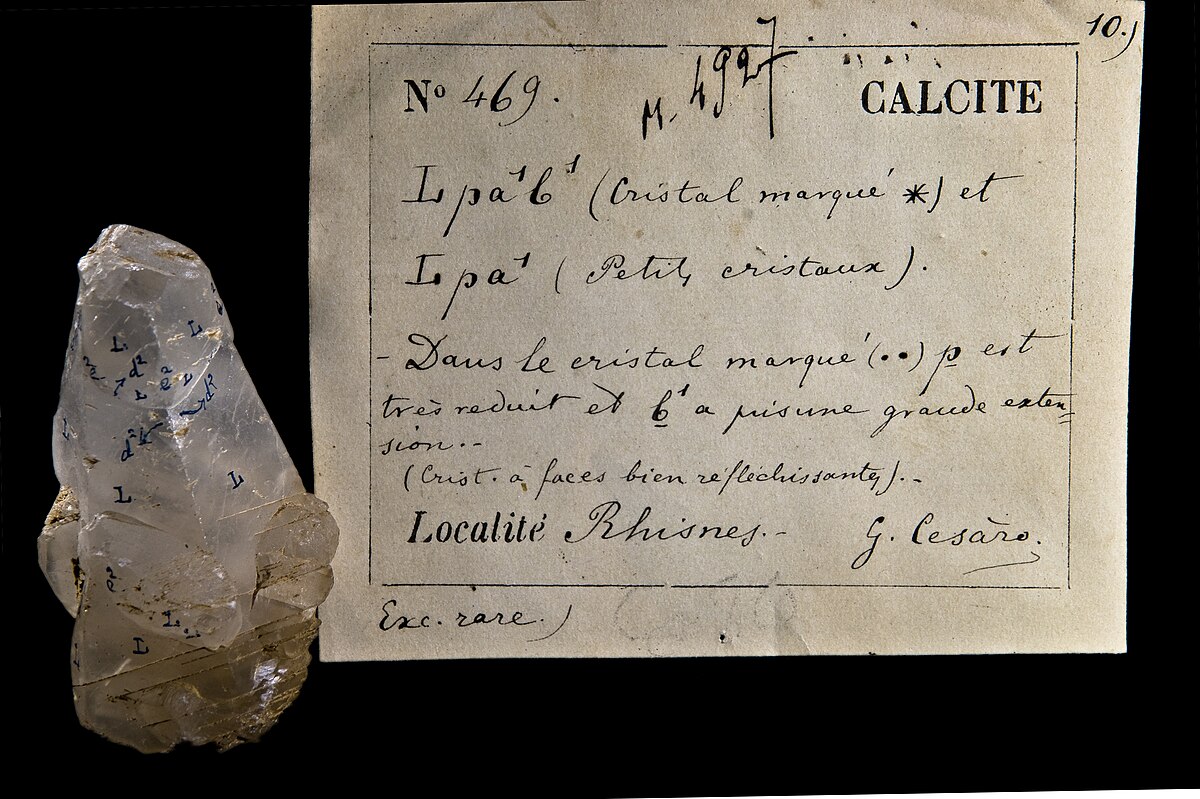 10.)
Nº 469. M. 4927 CALCITE
L p a¹ b¹ (Cristal marqué *) et
L p a¹ (Petits cristaux).
- Dans le cristal marqué (••) p est
très reduit et b¹ a pris une grande exten=
sion.-
(Crist. à faces bien réfléchissantes).-
Localité Rhisnes.- G. Cesàro.
Exc. rare.)
L
L
d²
e²
L
L
d²
L
L
e²
L
L